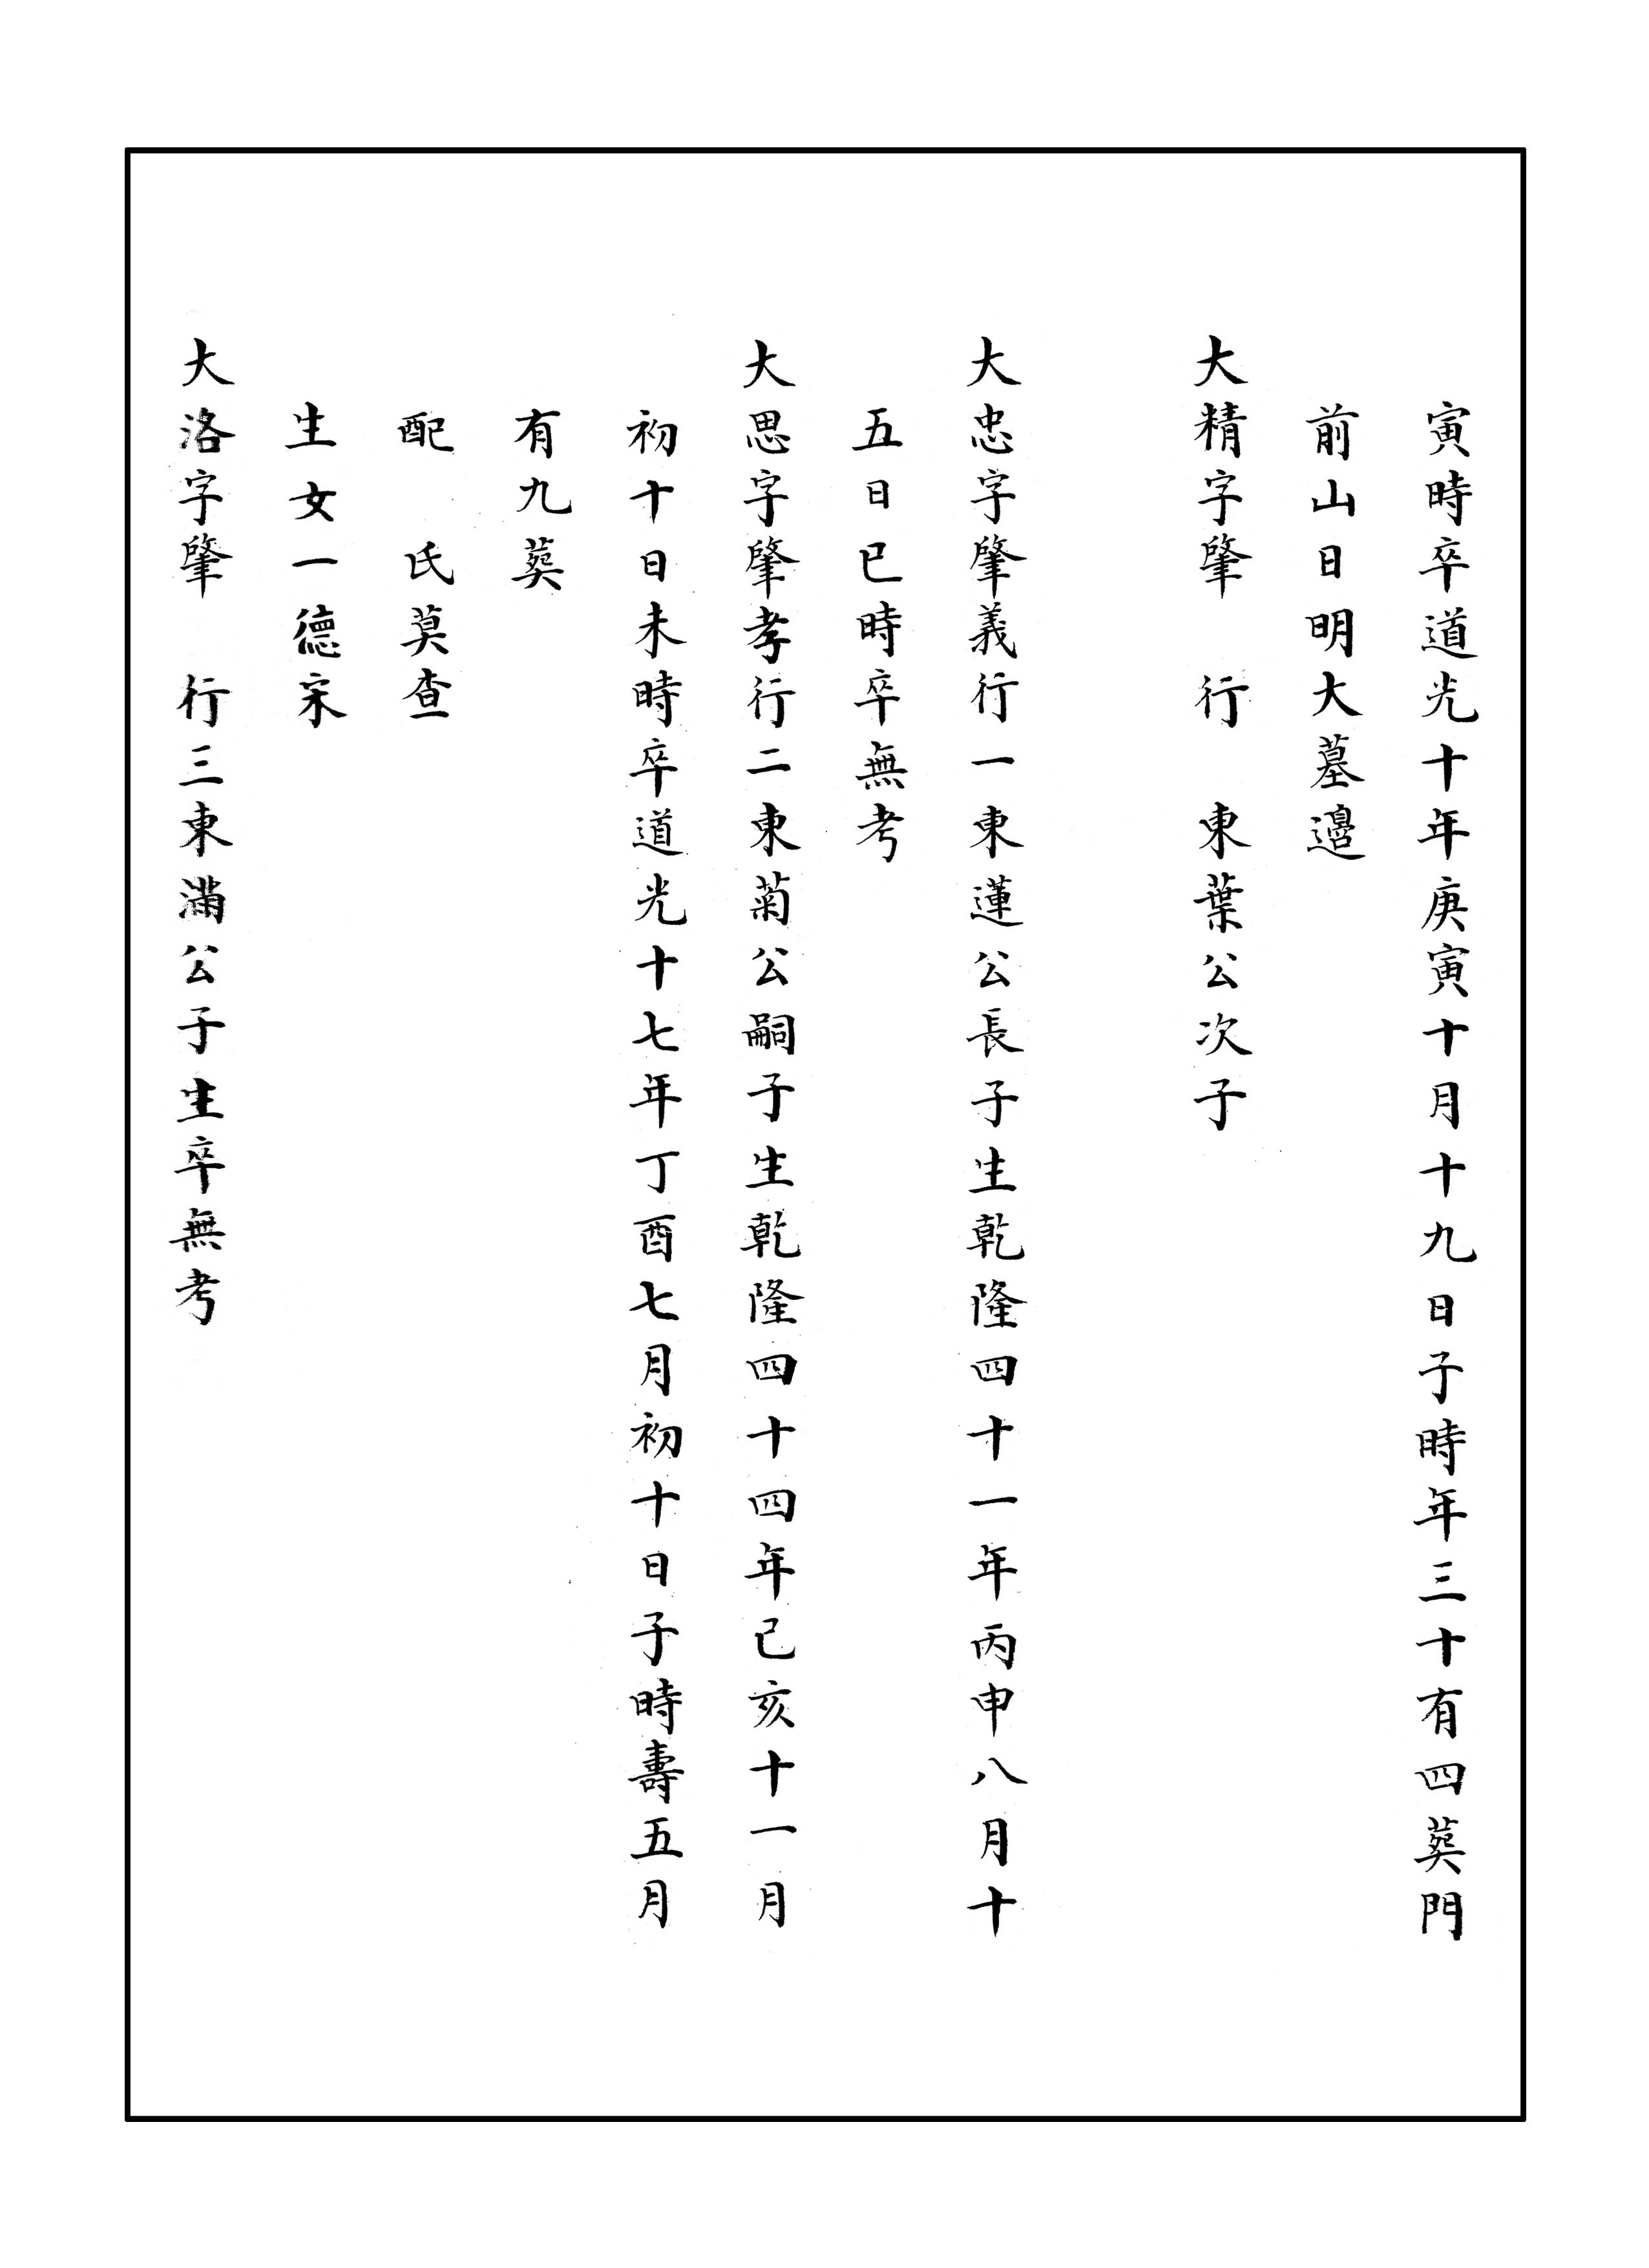 寅時卒道光十年庚寅十月十九日子時年三十有四葬門
前山日明大墓邊
大精字肇　行　東葉公次子
大忠字肇義行一東蓮公長子生乾隆四十一年丙申八月十
五日巳時卒無考
大思字肇孝行二東菊公嗣子生乾隆四十四年己亥十一月
初十日未時卒道光十七年丁酉七月初十日子時壽五月
有九葬
配　氏莫查
生女一德宋
大洛字肇　行三東滿公子生卒無考